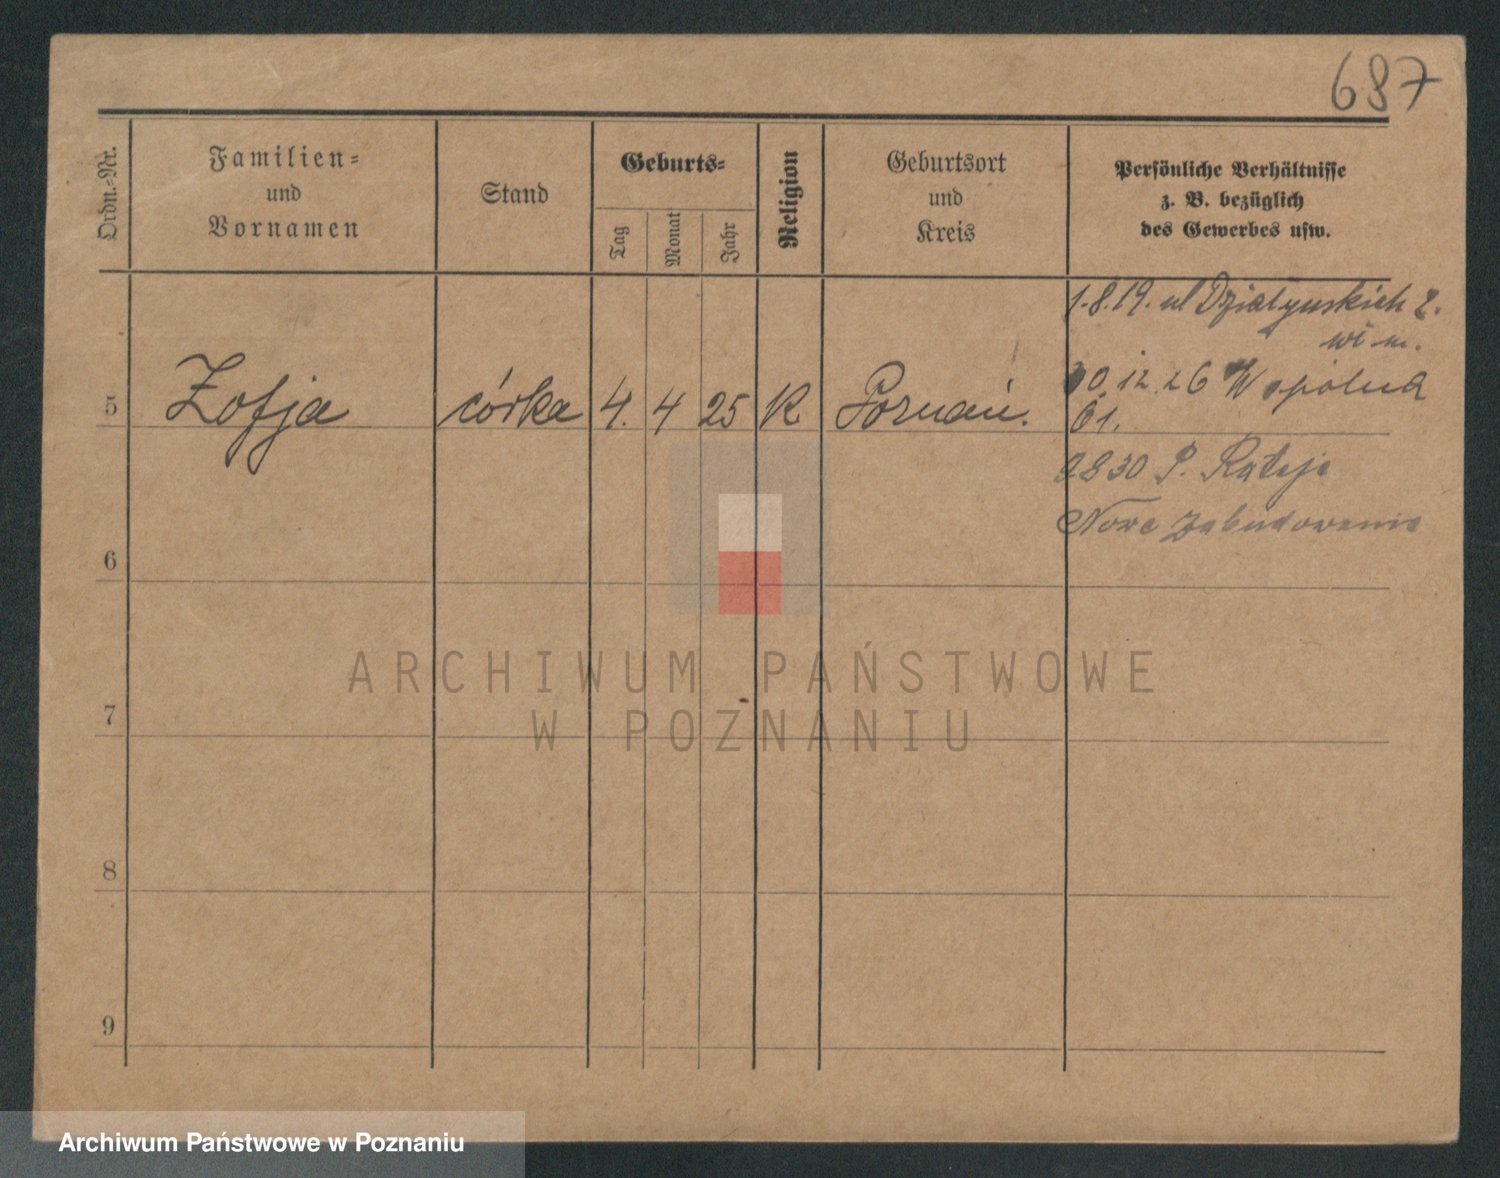 687
Ordn.-Nr.
Familien-
und
Vornamen
Stand
Geburts-
Tag
Monat
Jahr
Religion
Geburtsort
und
Kreis
Persönliche Verhältnisse
z. B. bezüglich
des Gewerbes usw.
1.8.19. ul Działynskich 2.
5 Zofja córka 4. 4 25 K. Poznań.
30.12.26 Wspólna
61.
P. Rataje
Nowe Zabudowania
6
7
8
9
ARCHIWUM PAŃSTWOWE
W POZNANIU
Archiwum Państwowe w Poznaniu